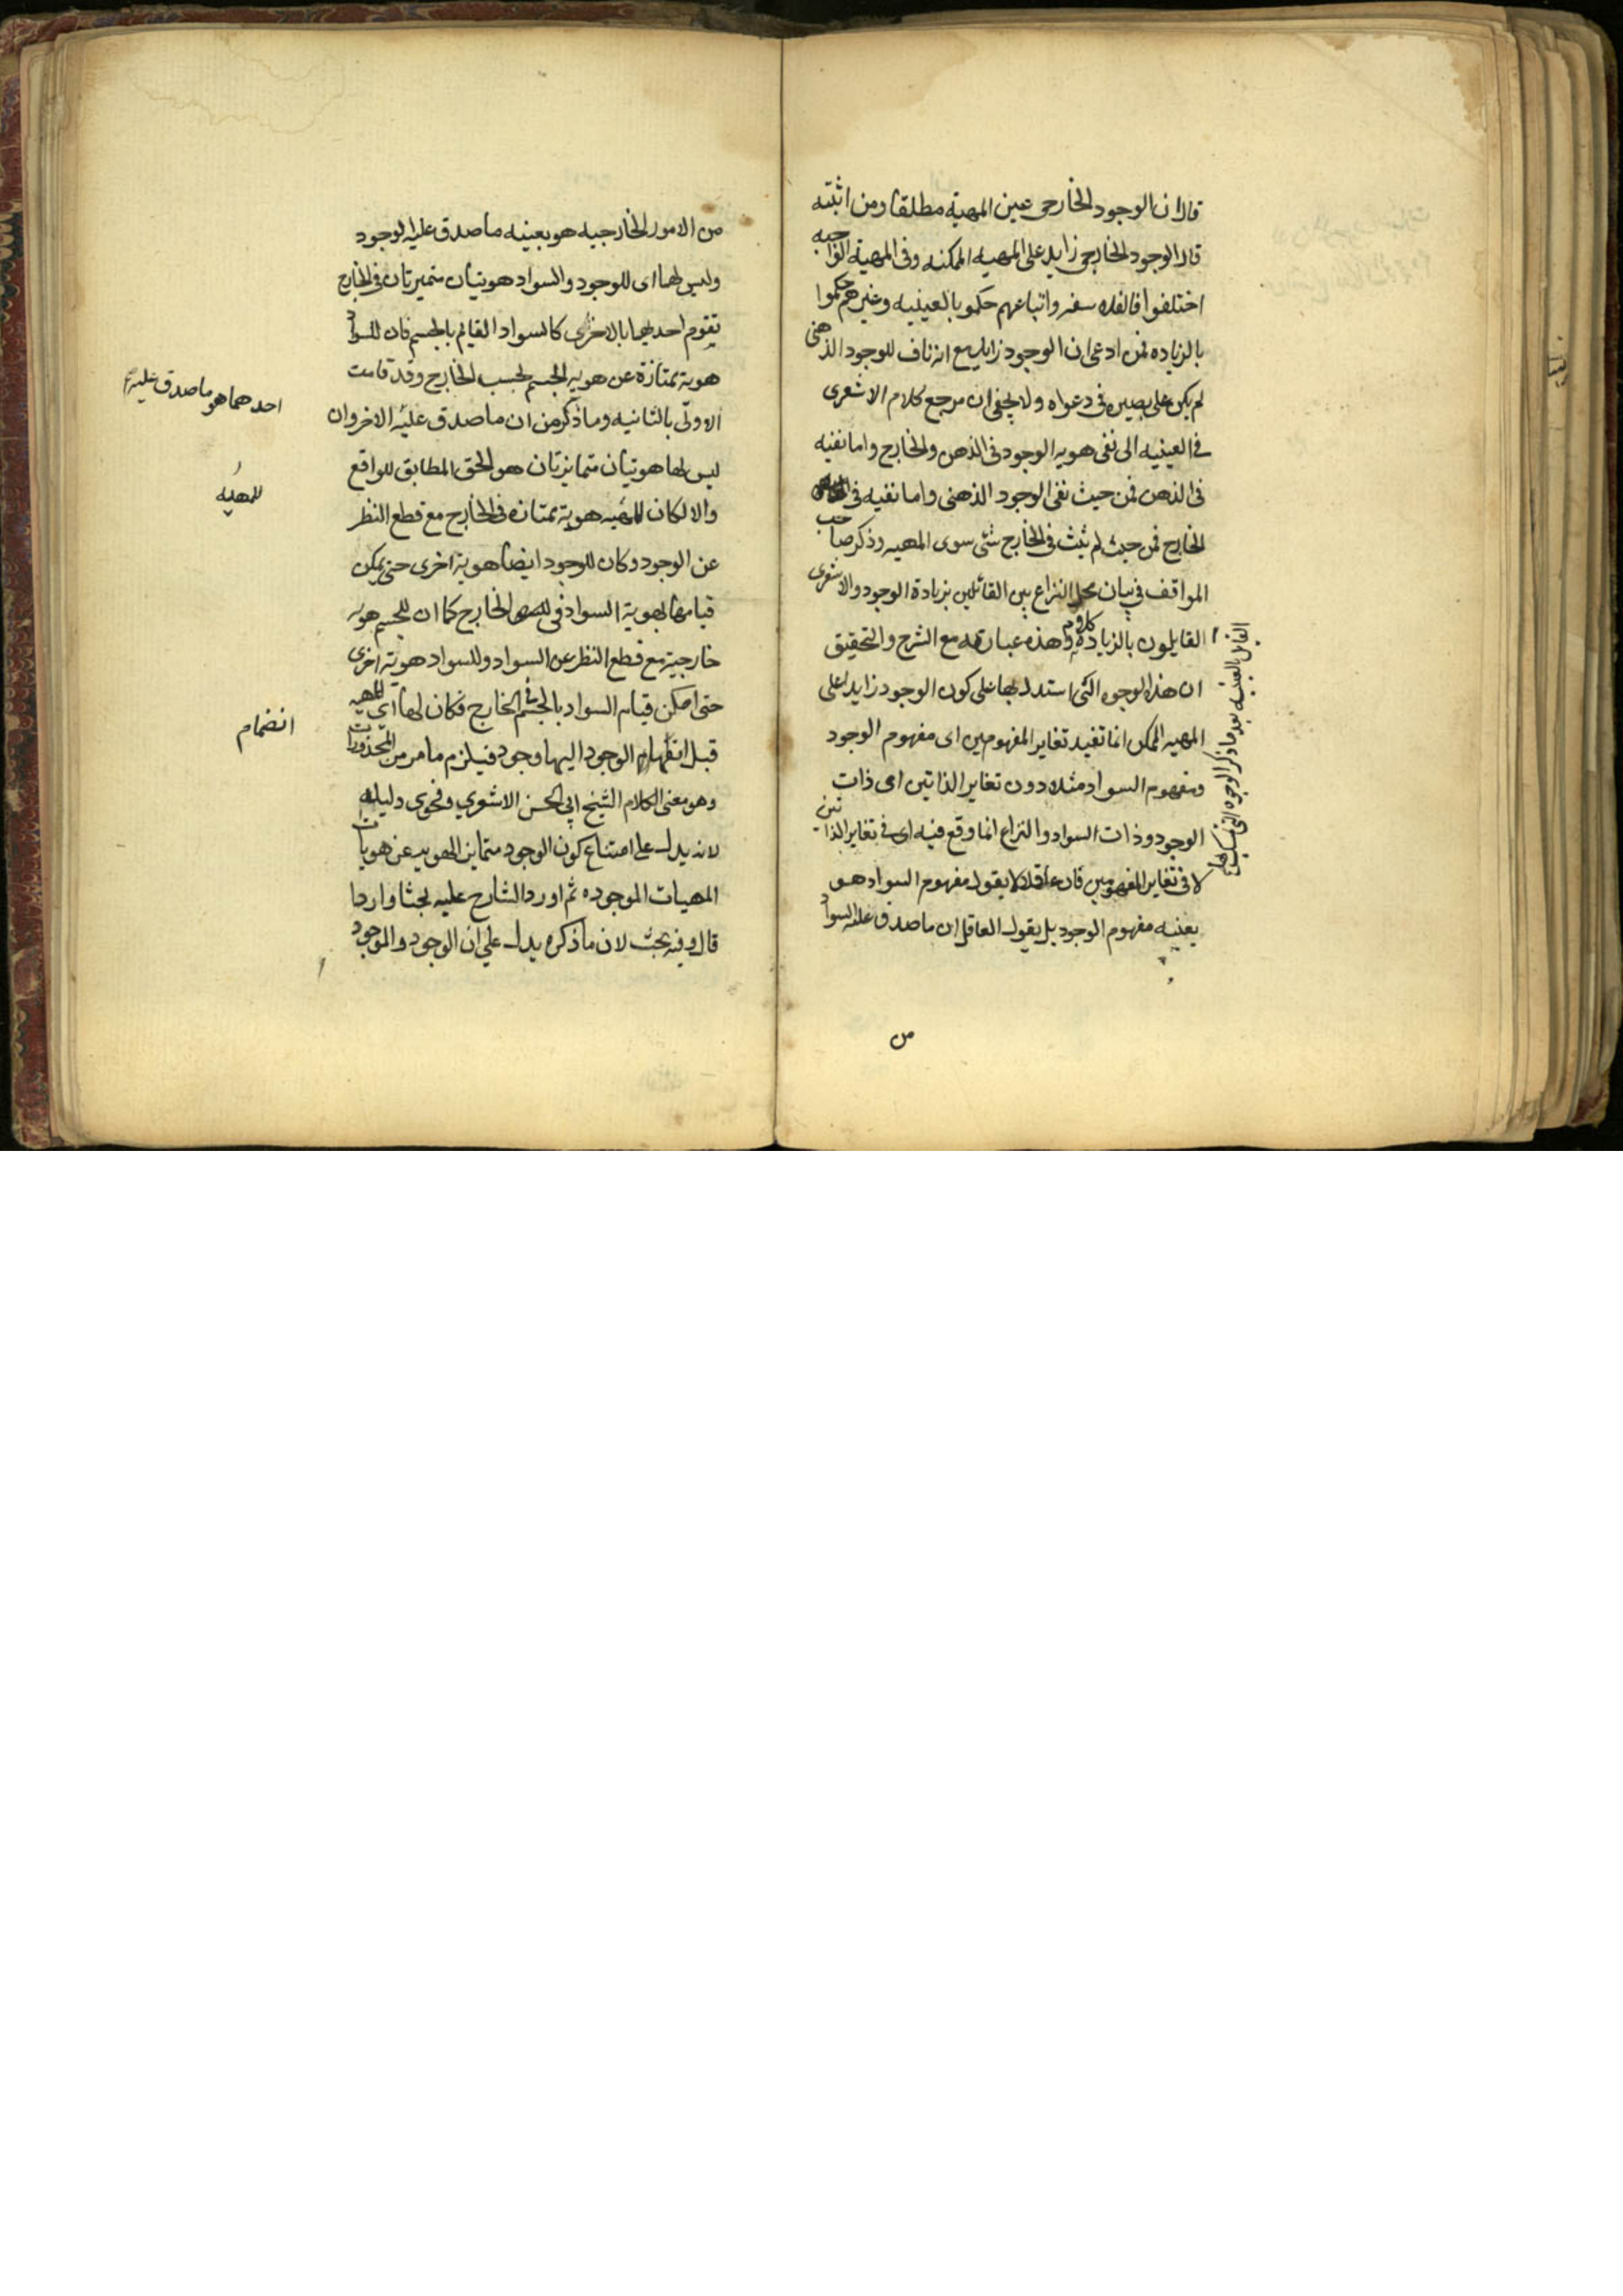 قال ان الوجود الخارجى عين المهية مطلقا ومن اثبته
قال الوجود الخارجى زايد على المهيه الممكنه وفى المهية الواجبه
اختلفوا فالفلاسفه واتباعهم حكمو بالعينيه وغيرهم حكموا
بالزياده فمن ادعى ان الوجود زايد مع انه ناف للوجود الذهنى
لم يكن على بصيره فى دعواه ولا يخفى ان مرجع كلام الاشعرى
فى العينيه الى نفى هويه الوجود فى الذهن والخارج واما نفيه
فى الذهن فمن حيث نفى الوجود الذهنى واما نفيه فى
الخارج فمن حيث لم يثبت فى الخارج شئ سوى المهيه وذكر صاحب
المواقف فى بيان محل النزاع بين القائلين بزيادة الوجود والاشعرى
القايلون بالزيادة كلام وهذه عبارته مع الشرح والتحقيق
ان هذه الوجوه التى استدل بها على كون الوجود زايدا على
المهيه الممكن انما تفيد تغاير المفهومين اى مفهوم الوجود
ومفهوم السواد مثلا دون تغاير الذاتين اى ذات
الوجود وذات السواد والنزاع انما وقع فيه اى فى تغاير الذاتين
لا فى تغاير المفهومين فان عاقلا لا يقول مفهوم السواد هو
بعينه مفهوم الوجود بل يقول العاقل ان ما صدق عليه السواد
القايل بالعينيه بعد ما ذكر الوجوه التى
من
من الامور الخارجيه هو بعينه ما صدق عليه الوجود
وليس لهما اى للوجود والسواد هويتان متميزتان فى الخارج
يقوم احديهما بالاخرى كالسواد القايم بالجسم فان للسواد
هوية ممتازة عن هويه الجسم بحسب الخارج وقد قامت
الاولى بالثانيه وما ذكر من ان ما صدق عليه الاخر وان
احدهما هو ما صدق عليه
ليس لهما هويتان متمايزتان هو الحق المطابق للواقع
والا لكان للمهيه هوية ممتازه فى الخارج مع قطع النظر
للمهيه
عن الوجود وكان للوجود ايضا هوية اخرى حتى يمكن
قيامها بهوية السواد فى الخارج كما ان للجسم هويه
خارجية مع قطع النظر عن السواد وللسواد هوية اخرى
حتى امكن قيام السواد بالجسم فى الخارج فكان لها اى للمهيه
قبل انضمام الوجود اليها وجود فيلزم ما مر من المحذورات
انضمام
وهو معنى الكلام الشيخ ابى الحسن الاشعري وفحوى دليله
لانه يدل على امتناع كون الوجود متمايز الهويه عن هويات
المهيات الموجوده ثم اورد الشارح عليه بحثا واردا
قال وفيه بحث لان ما ذكره يدل على ان الوجود والموجود